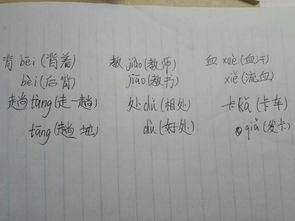 背 bēi (背着) 教 jiào (教师) 血 xuè (血汗)
bèi (后背) jiāo (教书) xiě (流血)
趟 tàng (走一趟) 处 chǔ (相处) 卡 kǎ (卡车)
tāng (趟地) chù (好处) qiǎ (发卡)